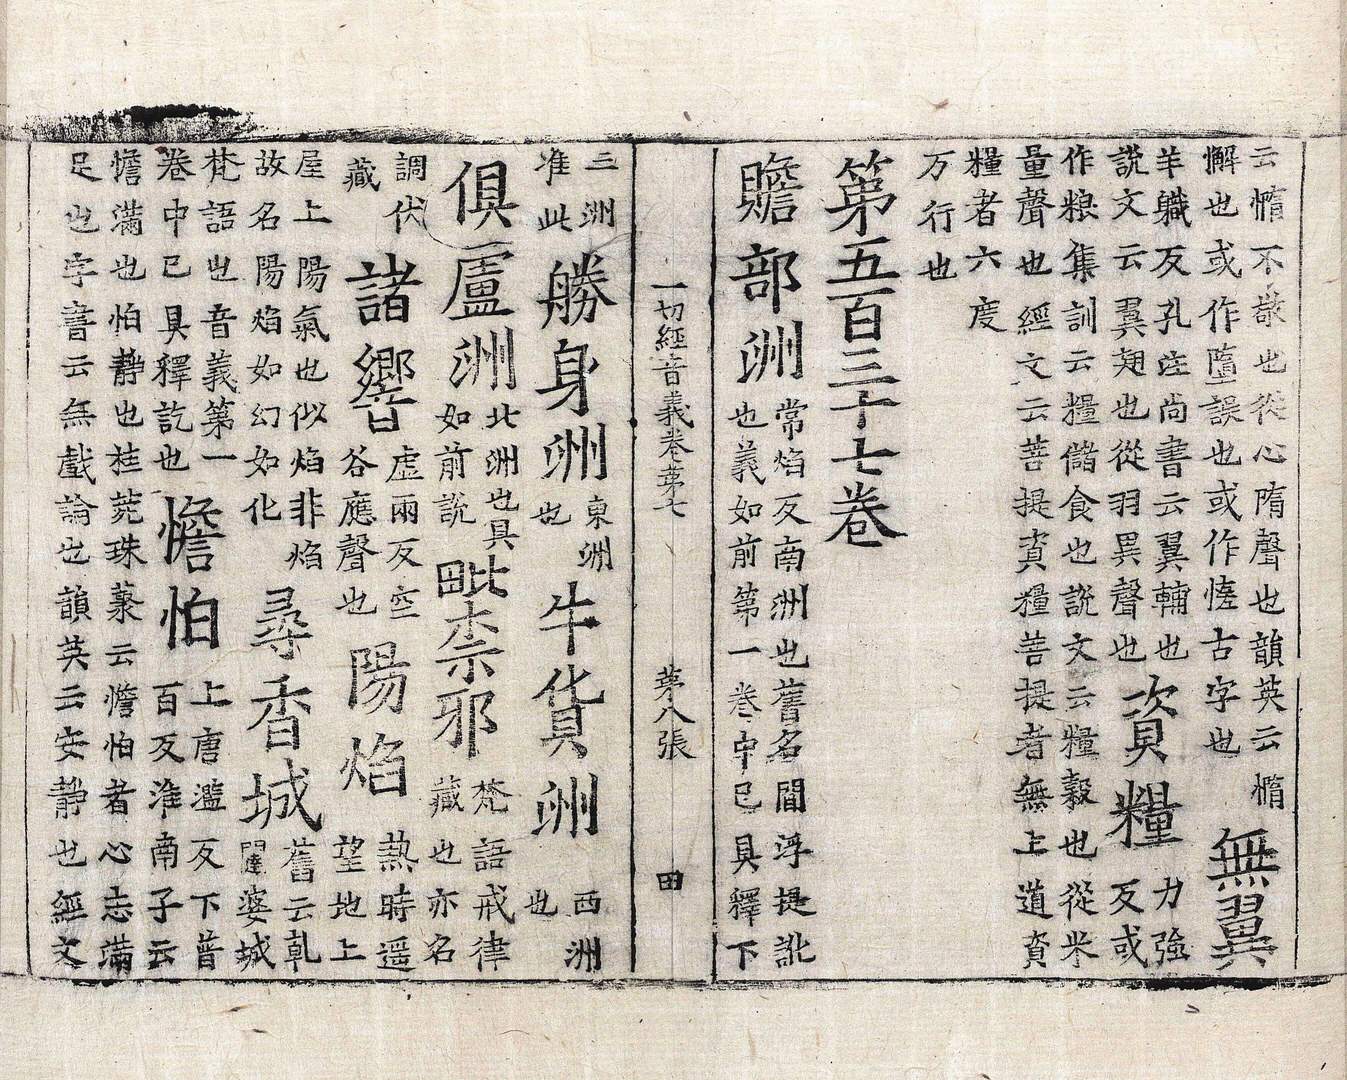 云惰不敬也從心隋聲也韻英云惰
懈也或作墮誤也或作憜古字也
無翼
羊職反孔注尚書云翼輔也
說文云翼翅也從羽異聲也
資糧
力強
反或
作粮集訓云糧儲食也說文云糧穀也從米
量聲也經文云菩提資糧菩提者無上道資
糧者六度
万行也
第五百三十七卷
贍部洲
常焰反南洲也舊名閻浮提訛
也義如前第一卷中已具釋下
一切經音義卷苐七 苐八張 田
三洲
准此
勝身洲
東洲
也
牛貨洲
西洲
也
俱盧洲
北洲也具
如前說
毗柰邪
梵語戒律
藏也亦名
調伏
藏
諸響
虛兩反空
谷應聲也
陽焰
熱時遥
望地上
屋上陽氣也似焰非焰
故名陽焰如幻如化
尋香城
舊云乹
闥婆城
梵語也音義第一
卷中已具釋訖也
憺怕
上唐濫反下普
百反淮南子云
憺滿也怕静也桂菀珠藂云憺怕者心志滿
足也字書云無戲論也韻英云安静也經文